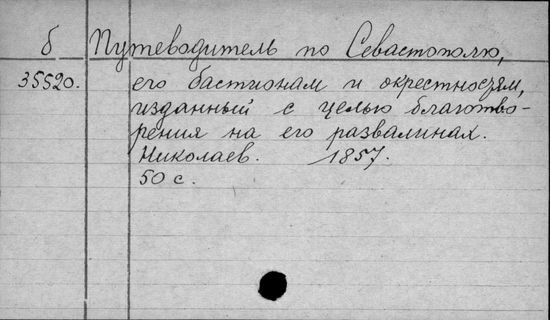 б Путеводитель по Севастополю,
35520. его бастионам и окрестностям,
изданный с целью благотво-
рения на его развалинах.
Николаев. 1857.
50 с.